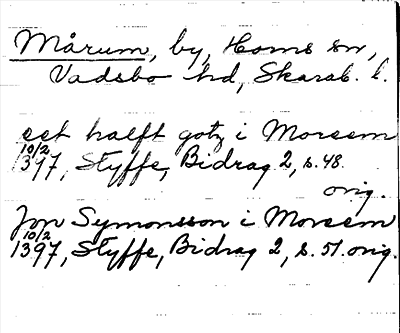 Mårum, by, Homs sn,
Vadsbo hd, Skarab. l.
eet halft gotz i Morsem
10/2
1397, Styffe, Bidrag 2, s. 48.
orig.
Jon Symonsson i Morsem
10/2
1397, Styffe, Bidrag 2, s. 51. orig.